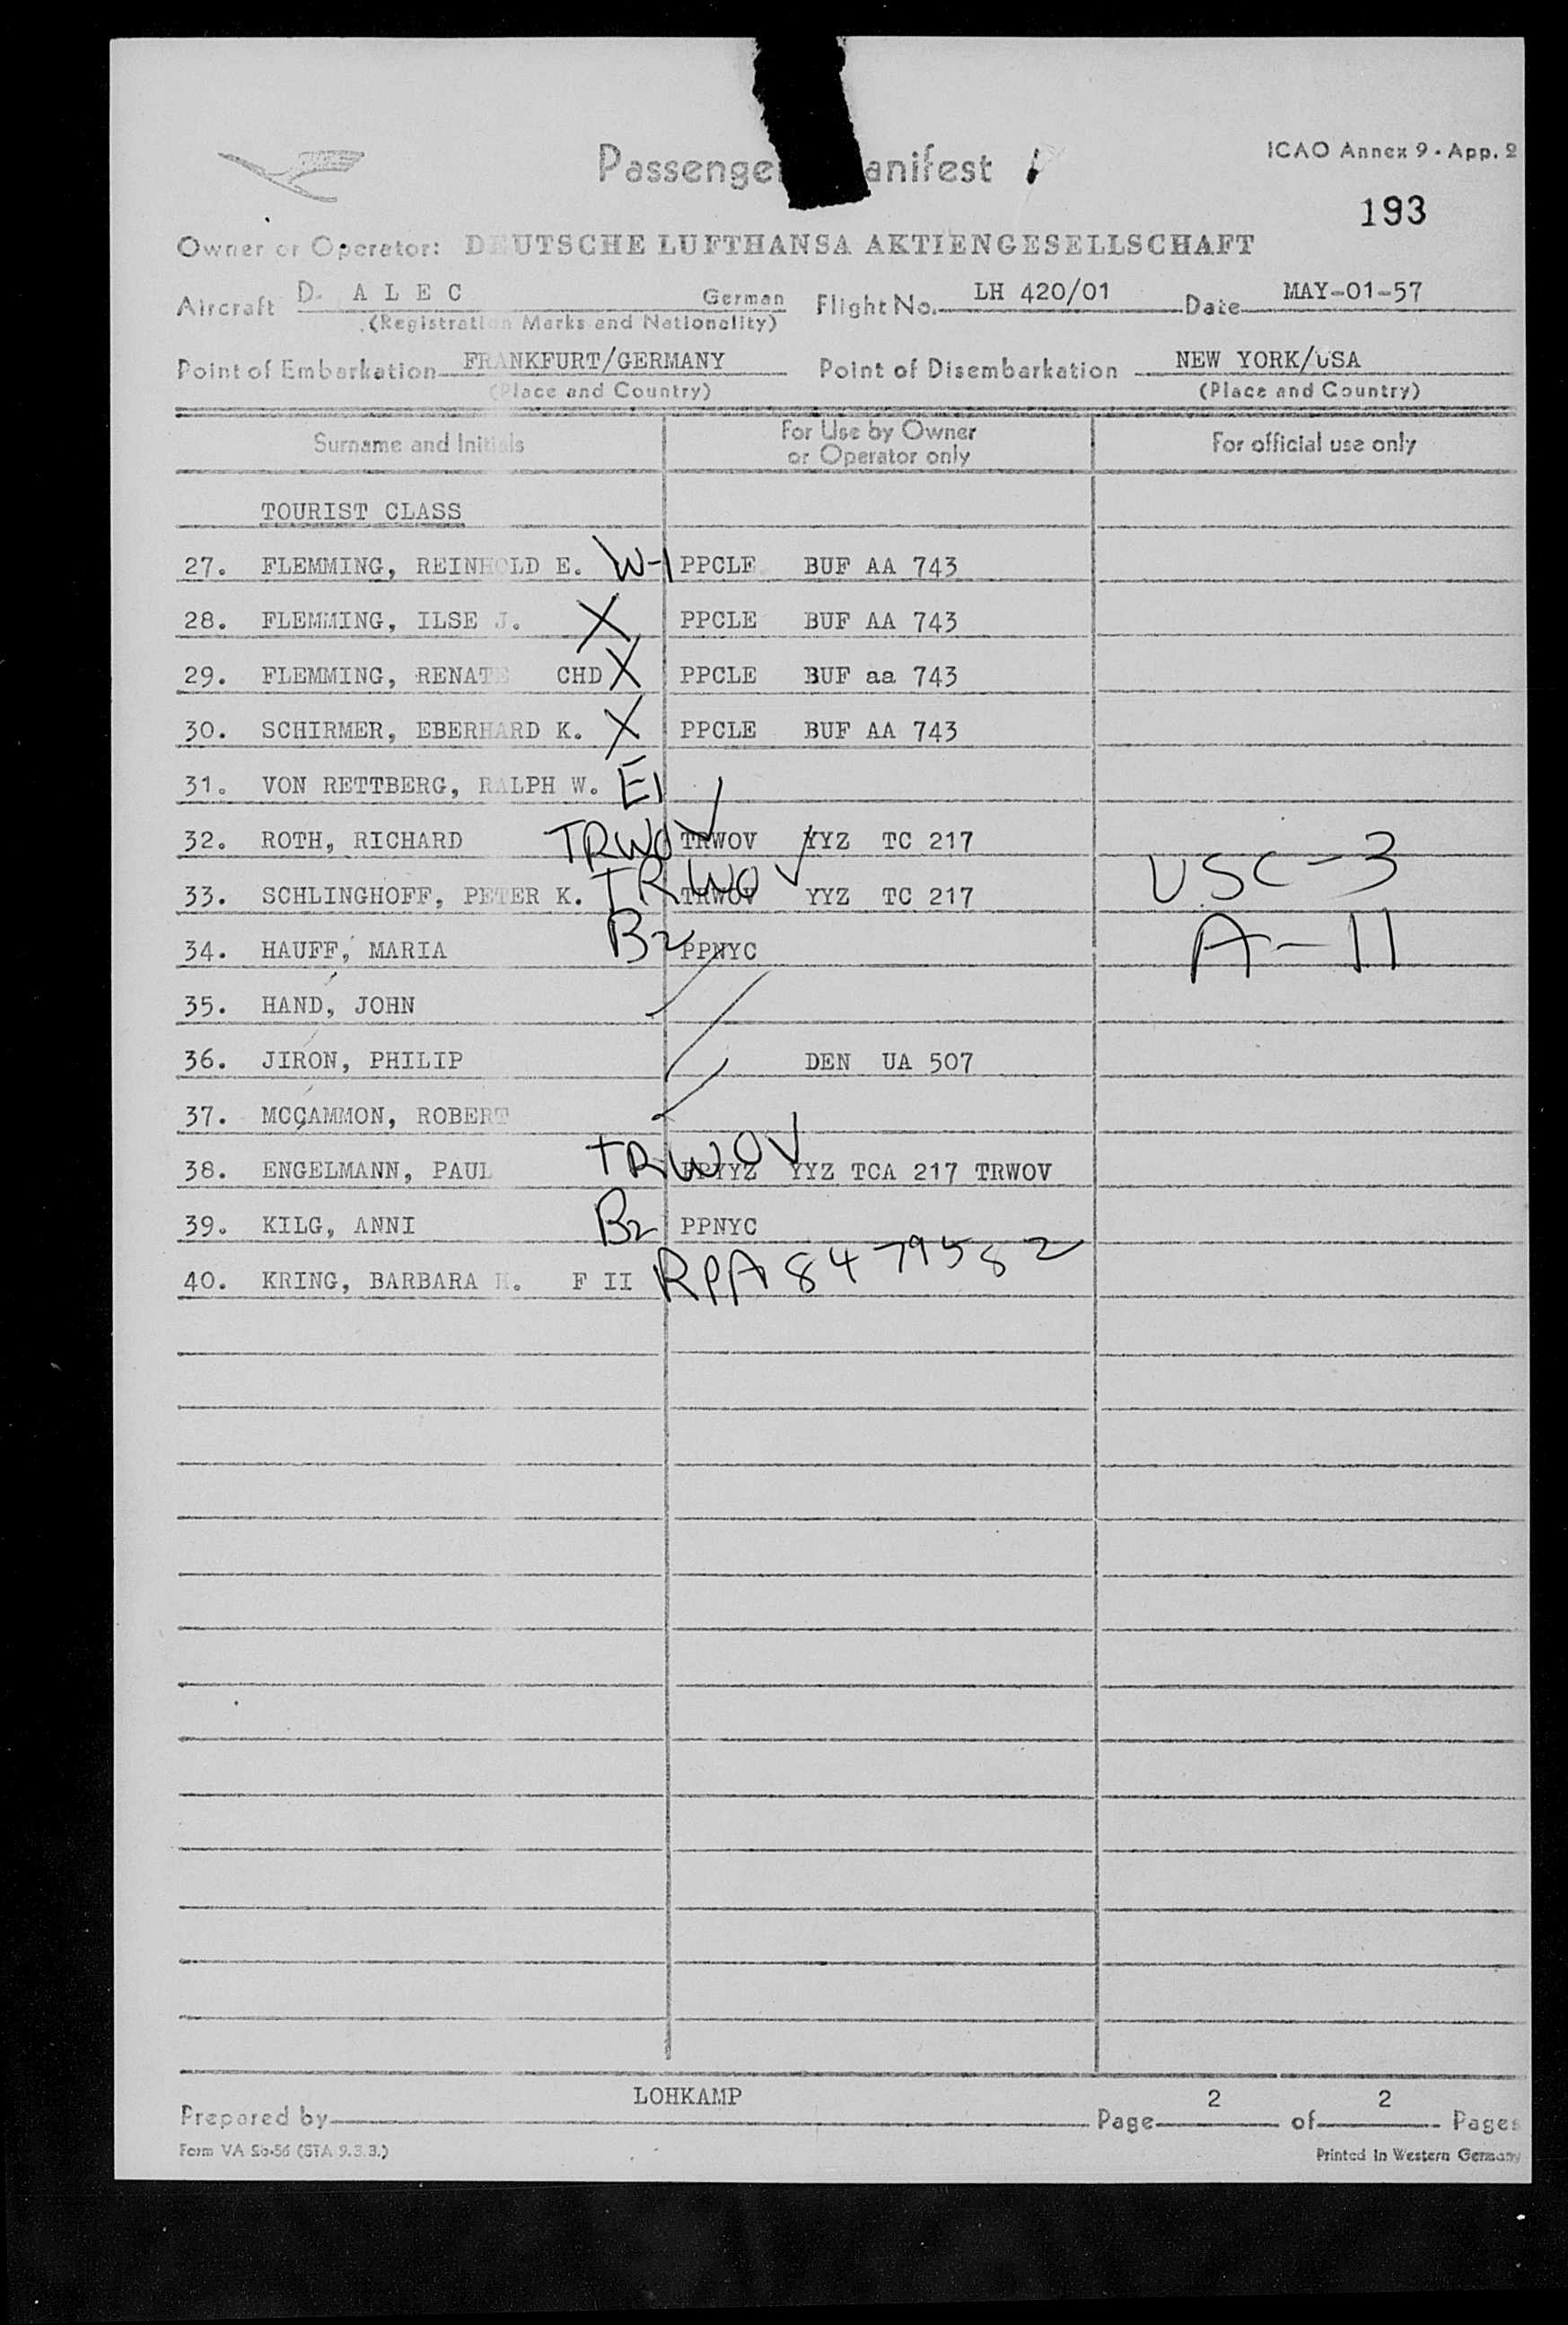 Passenge anifest
ICAO Annex 9 - App. 2
193
Owner or Operator: DEUTSCHE LUFTHANSA AKTIENGESELLSCHAFT
Aircraft D- A L E C German Flight No. LH 420/01 Date MAY-01-57
(Registration Marks and Nationality)
Point of Embarkation FRANKFURT/GERMANY Point of Disembarkation NEW YORK/USA
(Place and Country) (Place and Country)
Surname and Initials For Use by Owner or Operator only For official use only
TOURIST CLASS
27. FLEMMING, REINHOLD E. W-1 PPCLE BUF AA 743
28. FLEMMING, ILSE J. X PPCLE BUF AA 743
29. FLEMMING, RENATE CHD X PPCLE BUF aa 743
30. SCHIRMER, EBERHARD K. X PPCLE BUF AA 743
31. VON RETTBERG, RALPH W. E1
32. ROTH, RICHARD TRWOV TRWOV YYZ TC 217
33. SCHLINGHOFF, PETER K. TRWOV TRWOV YYZ TC 217 USC-3
34. HAUFF, MARIA B2 PPNYC A-11
35. HAND, JOHN
36. JIRON, PHILIP DEN UA 507
37. MCCAMMON, ROBERT
38. ENGELMANN, PAUL TRWOV PPYYZ YYZ TCA 217 TRWOV
39. KILG, ANNI B2 PPNYC
40. KRING, BARBARA H. F II RPA 8479582
LOHKAMP
Prepared by Page 2 of 2 Pages
Form VA Sb-56 (STA 9.3.3.) Printed in Western Germany